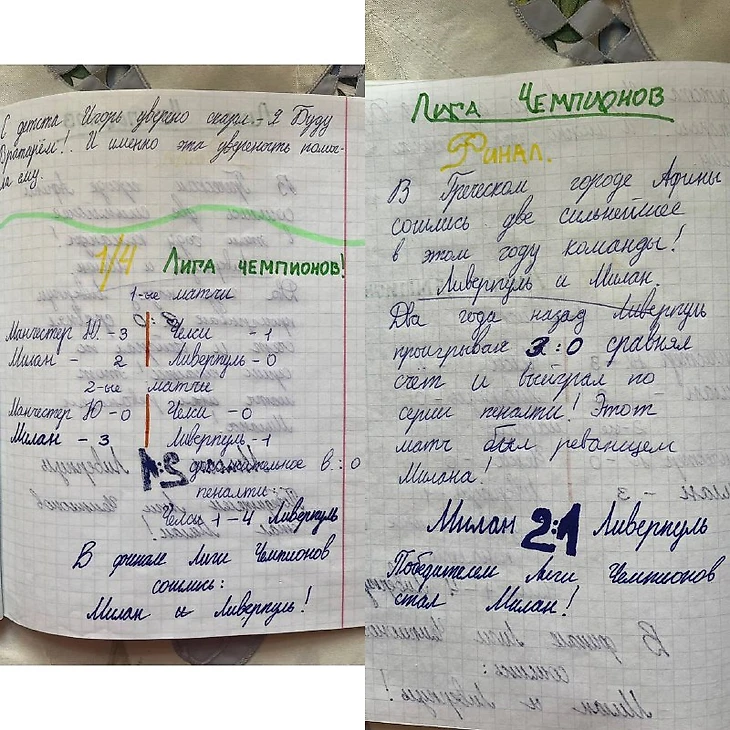 С детства Игорь уверено скарл - Я Буду
Вратарём!. И именно эта увереность помо-
гла ему.
1/4 Лига чемпионов!
1-ые матчи
Манчестер Ю. - 3 Челси - 1
Милан - 2 Ливерпуль - 0
2-ые матчи
Манчестер Ю - 0 Челси - 0
Милан - 3 Ливерпуль - 1
дополнительное в : 0
пенальти
Челси 1 - 4 Ливерпуль
В финал Лиги Чемпионов
сошлись:
Милан и Ливерпуль!
Лига Чемпионов
Финал.
В Греческом городе Афины
сошлись две сильнейшие
в этом году команды!
Ливерпуль и Милан.
Два года назад Ливерпуль
проигрывая 3:0 сравнял
счёт и выйграл по
серии пеналти! Этот
матч был реваншем
Милана!
Милан 2:1 Ливерпуль
Победителем Лиги Чемпионов
стал Милан!